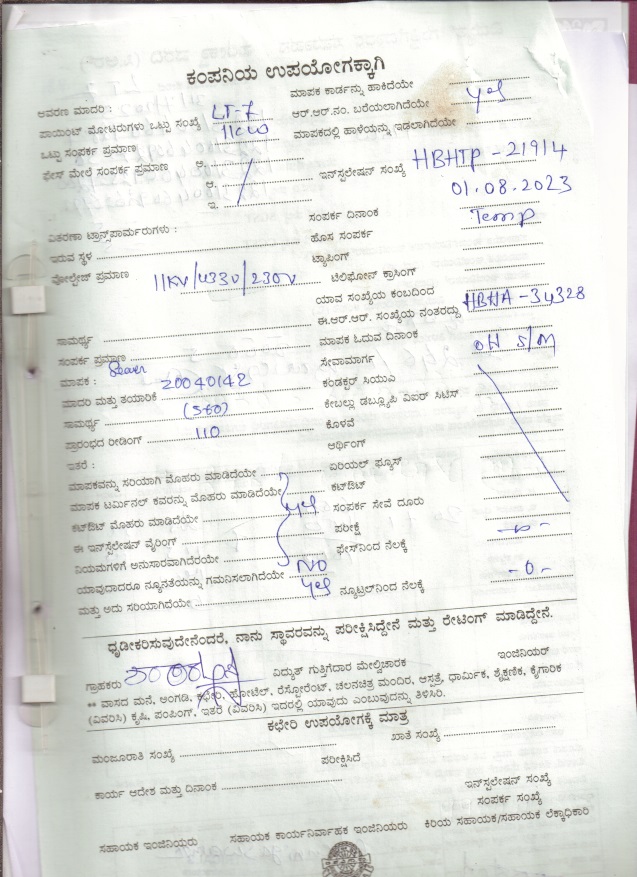 ಕಂಪನಿಯ ಉಪಯೋಗಕ್ಕಾಗಿ
ಮಾಪಕ ಕಾರ್ಡನ್ನು ಹಾಕಿದೆಯೇ
ಆವರಣ ಮಾದರಿ : LT-7 ಆರ್.ಆರ್.ನಂ. ಬರೆಯಲಾಗಿದೆಯೇ yes
ಪಾಯಿಂಟ್ ಮೋಟರುಗಳು ಒಟ್ಟು ಸಂಖ್ಯೆ 11KW ಮಾಪಕದಲ್ಲಿ ಹಾಳೆಯನ್ನು ಇಡಲಾಗಿದೆಯೇ
ಒಟ್ಟು ಸಂಪರ್ಕ ಪ್ರಮಾಣ
ಫೇಸ್ ಮೇಲೆ ಸಂಪರ್ಕ ಪ್ರಮಾಣ ಆ. ಇನ್‌ಸ್ಟಲೇಷನ್ ಸಂಖ್ಯೆ HBHTP-21914
ಆ. 01.08.2023
ಇ. ಸಂಪರ್ಕ ದಿನಾಂಕ Temp
ವಿತರಣಾ ಟ್ರಾನ್ಸ್‌ಪಾರ್ಮರುಗಳು : ಹೊಸ ಸಂಪರ್ಕ
ಇರುವ ಸ್ಥಳ ಟ್ಯಾಪಿಂಗ್
ವೋಲ್ಟೇಜ್ ಪ್ರಮಾಣ 11KV/433V/230V ಟೆಲಿಫೋನ್ ಕ್ರಾಸಿಂಗ್
ಯಾವ ಸಂಖ್ಯೆಯ ಕಂಬದಿಂದ
ಈ.ಆರ್.ಆರ್. ಸಂಖ್ಯೆಯ ನಂತರದ್ದು HBHA-34328
ಸಾಮರ್ಥ್ಯ ಮಾಪಕ ಓದುವ ದಿನಾಂಕ
ಸಂಪರ್ಕ ಪ್ರಮಾಣ ಸೇವಾಮಾರ್ಗ OH S/M
ಮಾಪಕ : 20040142 ಕಂಡಕ್ಟರ್ ಸಿಯುಎ
ಮಾದರಿ ಮತ್ತು ತಯಾರಿಕೆ ಕೇಬಲ್ಲು ಡಬ್ಲ್ಯೂಪಿ ಎಐರ್ ಸಿಟಿಸ್
ಸಾಮರ್ಥ್ಯ ಕೊಳವೆ
ಪ್ರಾರಂಭದ ರೀಡಿಂಗ್ 110 ಆರ್ಥಿಂಗ್
ಇತರೆ : ಏರಿಯಲ್ ಫ್ಯೂಸ್
ಮಾಪಕವನ್ನು ಸರಿಯಾಗಿ ಮೊಹರು ಮಾಡಿದೆಯೇ ಕಟ್‌ಔಟ್
ಮಾಪಕ ಟರ್ಮಿನಲ್ ಕವರನ್ನು ಮೊಹರು ಮಾಡಿದೆಯೇ yes ಸಂಪರ್ಕ ಸೇವೆ ದೂರು
ಕಟ್‌ಔಟ್ ಮೊಹರು ಮಾಡಿದೆಯೇ ಪರೀಕ್ಷೆ
ಈ ಇನ್‌ಸ್ಟೆಲೇಷನ್ ವೈರಿಂಗ್ ಫೇಸ್‌ನಿಂದ ನೆಲಕ್ಕೆ -0-
ನಿಯಮಗಳಿಗೆ ಅನುಸಾರವಾಗಿದೆರಯೇ
ಯಾವುದಾದರೂ ನ್ಯೂನತೆಯನ್ನು ಗಮನಿಸಲಾಗಿದೆಯೇ NO
ಮತ್ತು ಅದು ಸರಿಯಾಗಿದೆಯೇ yes ನ್ಯೂಟ್ರಲ್‌ನಿಂದ ನೆಲಕ್ಕೆ -0-
ಧೃಡೀಕರಿಸುವುದೇನೆಂದರೆ, ನಾನು ಸ್ಥಾವರವನ್ನು ಪರೀಕ್ಷಿಸಿದ್ದೇನೆ ಮತ್ತು ರೇಟಿಂಗ್ ಮಾಡಿದ್ದೇನೆ.
ಗ್ರಾಹಕರು ವಿದ್ಯುತ್ ಗುತ್ತಿಗೆದಾರ ಮೇಲ್ವಿಚಾರಕ ಇಂಜಿನಿಯರ್
** ವಾಸದ ಮನೆ, ಅಂಗಡಿ, ಕಛೇರಿ, ಹೋಟೆಲ್, ರೆಸ್ಟೋರೆಂಟ್, ಚಲನಚಿತ್ರ ಮಂದಿರ, ಆಸ್ಪತ್ರೆ, ಧಾರ್ಮಿಕ, ಶೈಕ್ಷಣಿಕ, ಕೈಗಾರಿಕೆ
(ವಿವರಿಸಿ) ಕೃಷಿ, ಪಂಪಿಂಗ್, ಇತರೆ (ವಿವರಿಸಿ) ಇದರಲ್ಲಿ ಯಾವುದು ಎಂಬುವುದನ್ನು ತಿಳಿಸಿರಿ.
ಕಛೇರಿ ಉಪಯೋಗಕ್ಕೆ ಮಾತ್ರ
ಮಂಜೂರಾತಿ ಸಂಖ್ಯೆ ಖಾತೆ ಸಂಖ್ಯೆ
ಪರೀಕ್ಷಿಸಿದೆ
ಕಾರ್ಯ ಆದೇಶ ಮತ್ತು ದಿನಾಂಕ
ಇನ್‌ಸ್ಟಲೇಷನ್ ಸಂಖ್ಯೆ
ಸಂಪರ್ಕ ಸಂಖ್ಯೆ
ಸಹಾಯಕ ಇಂಜಿನಿಯರು ಸಹಾಯಕ ಕಾರ್ಯನಿರ್ವಾಹಕ ಇಂಜಿನಿಯರು ಕಿರಿಯ ಸಹಾಯಕ/ಸಹಾಯಕ ಲೆಕ್ಕಾಧಿಕಾರಿ